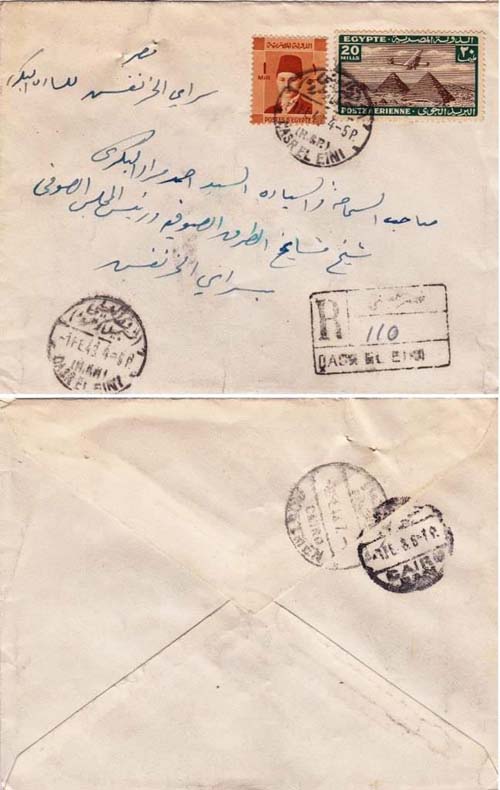 مصر
سراي الخرنفش للسادة البكرية
1
MILL
POSTES D'EGYPTE
الدولة المصرية
EGYPTE
20
MILLS
٣٠
POSTE AERIENNE
البريد الجوي
4-5 P.
(R.&R)
QASR EL EINI
صاحب السماحة والسيادة السيد احمد مراد البكري
شيخ مشايخ الطرق الصوفية ورئيس المجلس الصوفي
بسراي الخرنفش
-1 FE 43 4-5 P
(R.&R)
QASR EL EINI
R
110
QASR EL EINI
CAIRO
CAIRO